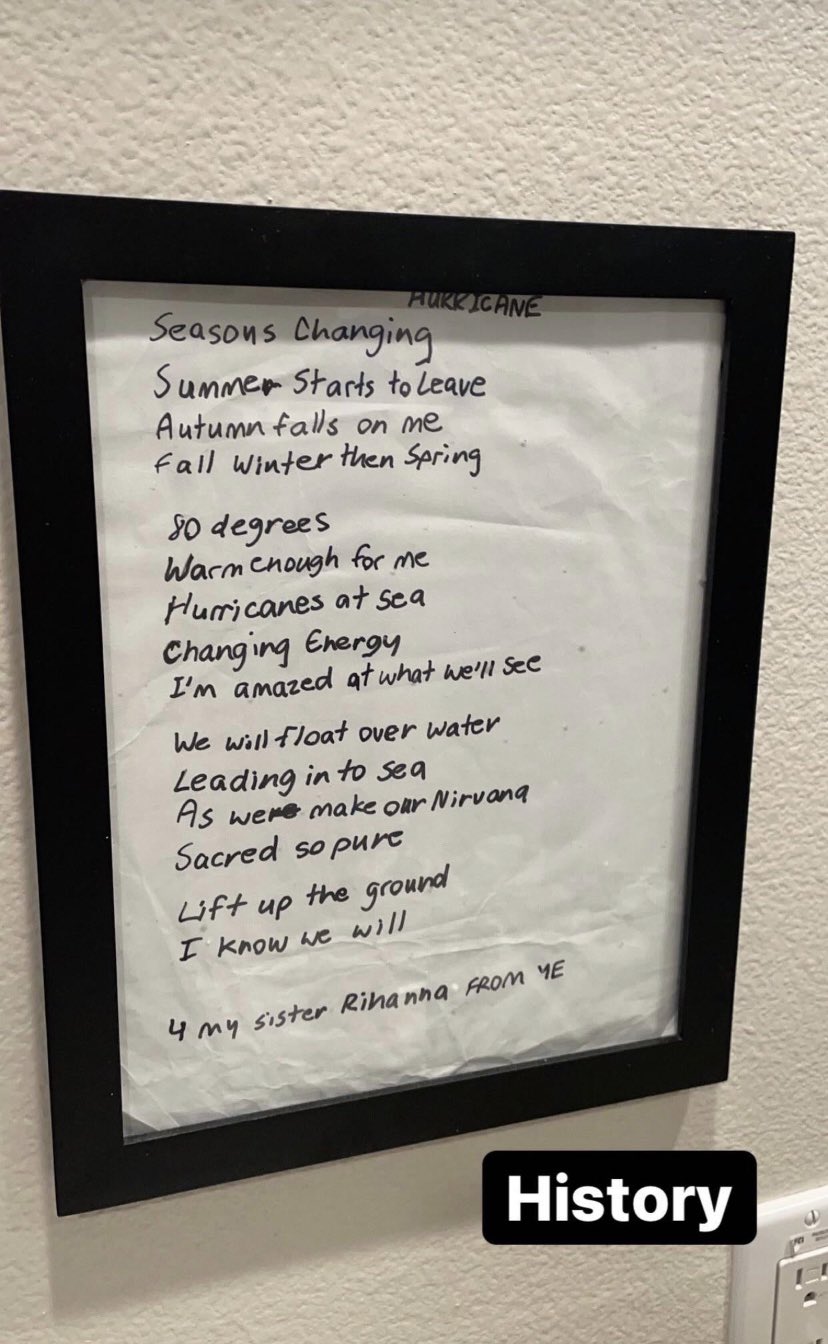 HURRICANE
Seasons Changing
Summer Starts to Leave
Autumn falls on me
Fall Winter then Spring
80 degrees
Warm enough for me
Hurricanes at sea
Changing Energy
I'm amazed at what we'll see
We will float over water
Leading in to sea
As we make our Nirvana
Sacred so pure
Lift up the ground
I know we will
4 my sister Rihanna FROM YE
History